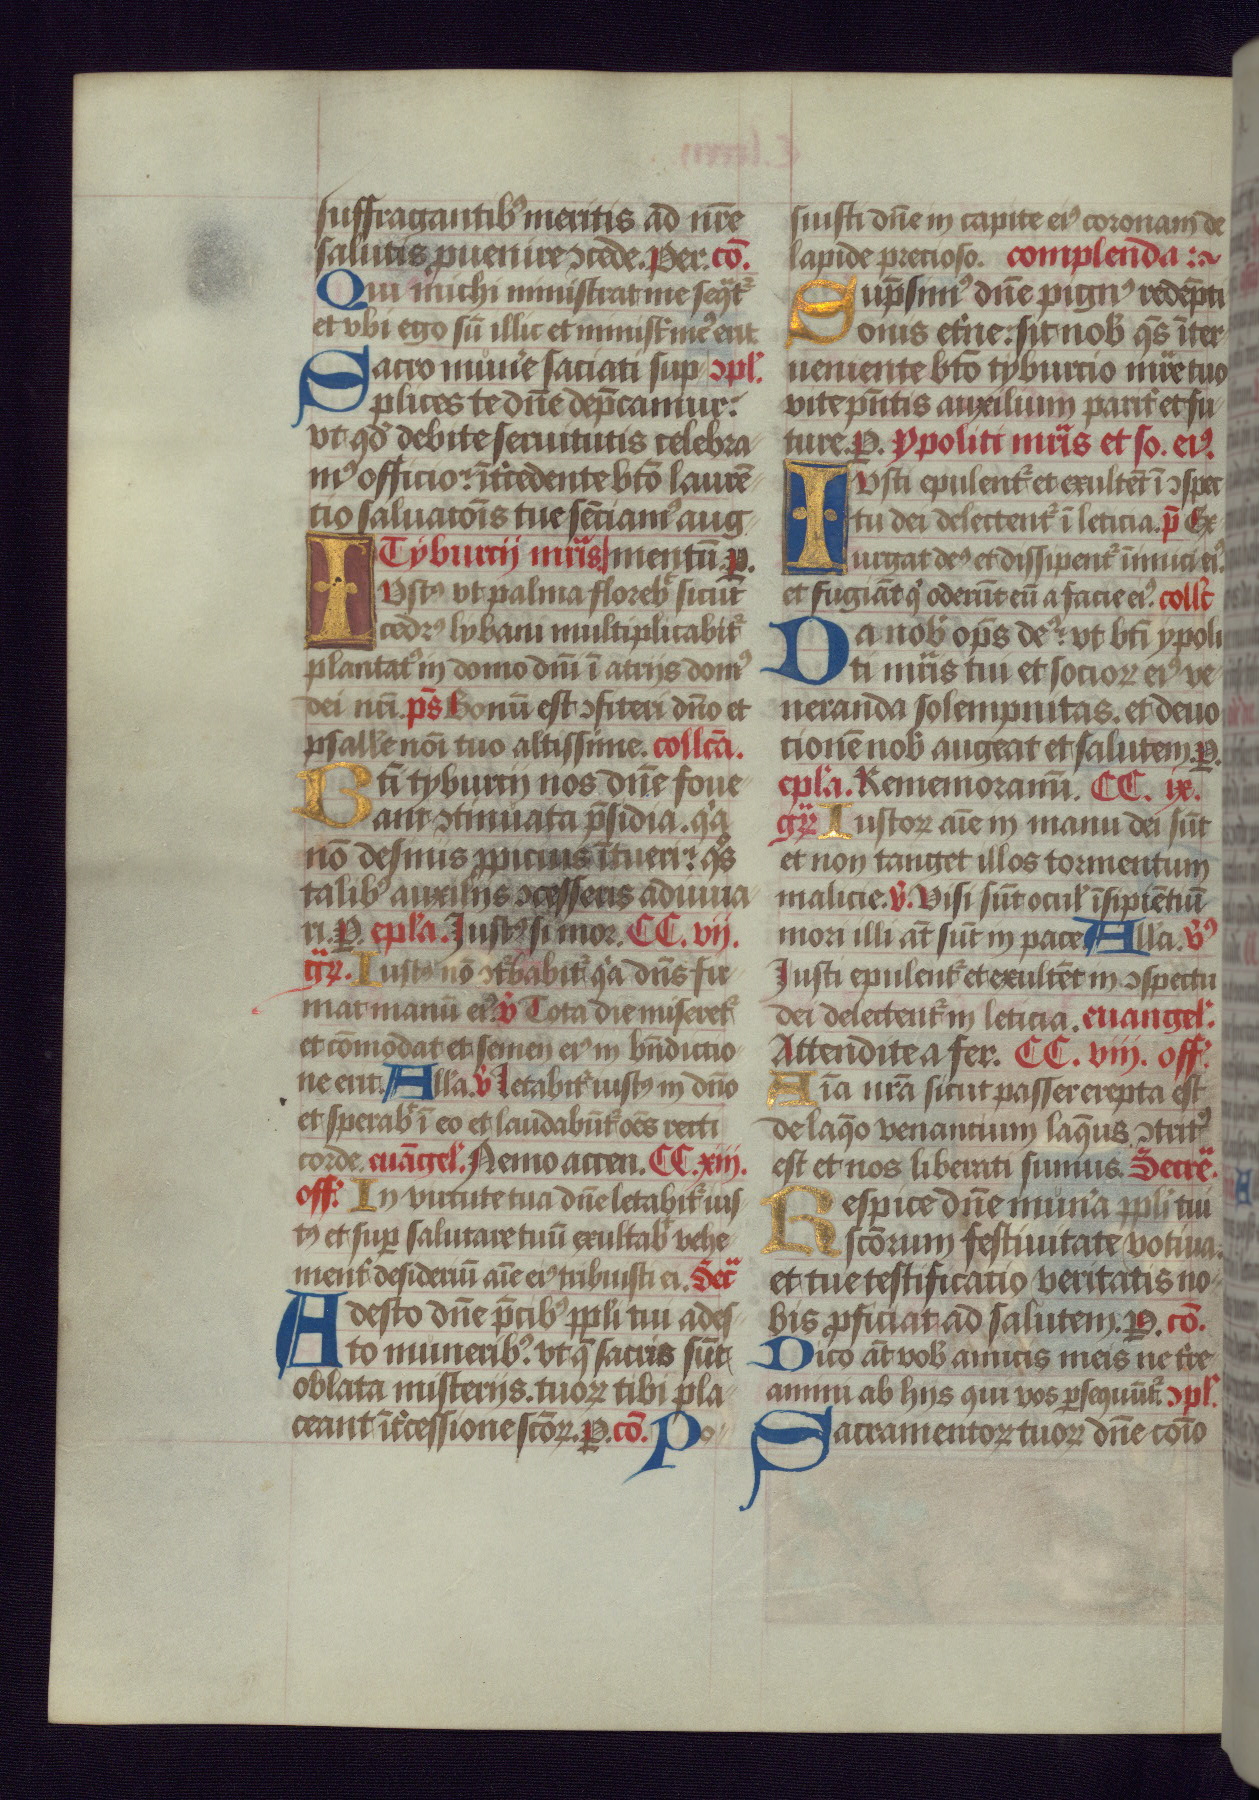 suffragantibꝰ meritis ad nr̄e
salutis ꝑuenire ɔcede. Per. cō.
Qui michi ministrat me seq̄tᷣ
et vbi ego sū illic et minist̉ meꝰ erit
Sacro mun̉e saciati sup- ɔpl̉.
plices te dn̄e dep̄camur:
vt qd̉ debite seruitutis celebra-
mꝰ officio: īt̉cedente bt̄o laurē-
tio saluatōis tue sēciamꝰ aug-
Tyburcij mr̄is mentū. P.
IVstꝰ vt palma floreb̉ sicut
cedrꝰ lybani multiplicabitᷣ
plantatꝰ in domo dn̄i ī atrijs domꝰ
dei nr̄i. ps̄ Bonū est ɔfiteri dn̄o et
psall̉e noī tuo altissime. collc̄a.
Bt̄i tyburcij nos dn̄e foue-
ant ɔtinuata p̄sidia. q̉a
nō desinis ꝓpicius ītueri: q̉s
talibꝰ auxilijs ɔcesseris adiuua-
ri. P. epl̉a. Justꝰ si mor. CC. vij.
gr̄. Iustꝰ nō ɔt̉babitᷣ q̉a dn̄s fir-
mat manū eiꝰ. v̉ Tota die miseretᷣ
et cōmodat et semen eiꝰ in bn̄dictio-
ne erit. All̉a. v̉ Letabitᷣ iustꝰ in dn̄o
et sperab̉ ī eo et laudabūtᷣ oēs recti
corde. euāgel̉. Nemo accen. CC. xiij.
off̉. In virtute tua dn̄e letabitᷣ ius-
tꝰ et suꝑ salutare tuū exultab̉ vehe-
ment̉ desideriū aīe eiꝰ tribuisti ei. Sec̄r
Adesto dn̄e p̄cibꝰ ppl̉i tui ades-
to muneribꝰ. vt q̄ sacris sūt
oblata misterijs. tuoꝝ tibi pla-
ceant īt̉cessione sc̄oꝝ. P. cō. Po-
suisti dn̄e in capite eiꝰ coronam de
lapide precioso. complenda :~
Sup̄simꝰ dn̄e pignꝰ redēpti
onis et̉ne: sit nob̉ q̄s īter-
ueniente bt̄o tyburcio mr̄e tuo
vite pn̄tis auxilium parit̉ et fu-
ture. P. ypoliti mr̄is et so. eiꝰ.
IVsti epulentᷣ et exultēt ī ɔspec
tu dei delectentᷣ ī leticia. p̄ Ex-
urgat deꝰ et dissipentᷣ īimici eiꝰ.
et fugiāt q̉ oderūt eū a facie eiꝰ. coll̄c
Da nob̉ op̄s deꝰ: vt bt̄i ypoli
ti mr̄is tui et socioꝝ eiꝰ ve-
neranda solempnitas. et deuo
tionē nob̉ augeat et salutem. P.
epl̉a. Rememoramī. CC. ix.
gr̄ Iustoꝝ aīe in manu dei sūt
et non tanget illos tormentum
malicie. v̉. Visi sūt ocul̉ īsipientiū
mori illi āt sūt in pace All̉a. v̉ꝰ
Justi epulentᷣ et exultēt in ɔspectu
dei delectentᷣ in leticia. euangel̉.
Attendite a fer. CC. viij. off̉.
Aīa nr̄a sicut passer erepta est
de laq̄o venantium laq̄us ɔtritꝰ
est et nos liberati sumus. Secrē.
Respice dn̄e mun̉a ppl̉i tui
sc̄orum festiuitate votiua.
et tue testificatio veritatis no-
bis ꝓficiat ad salutem. P. cō.
Dico āt vob̉ amicis meis ne t̉re-
amini ab hijs qui vos ꝑsequūtᷣ. ɔpl̉.
Sacramentoꝝ tuoꝝ dn̄e coīo